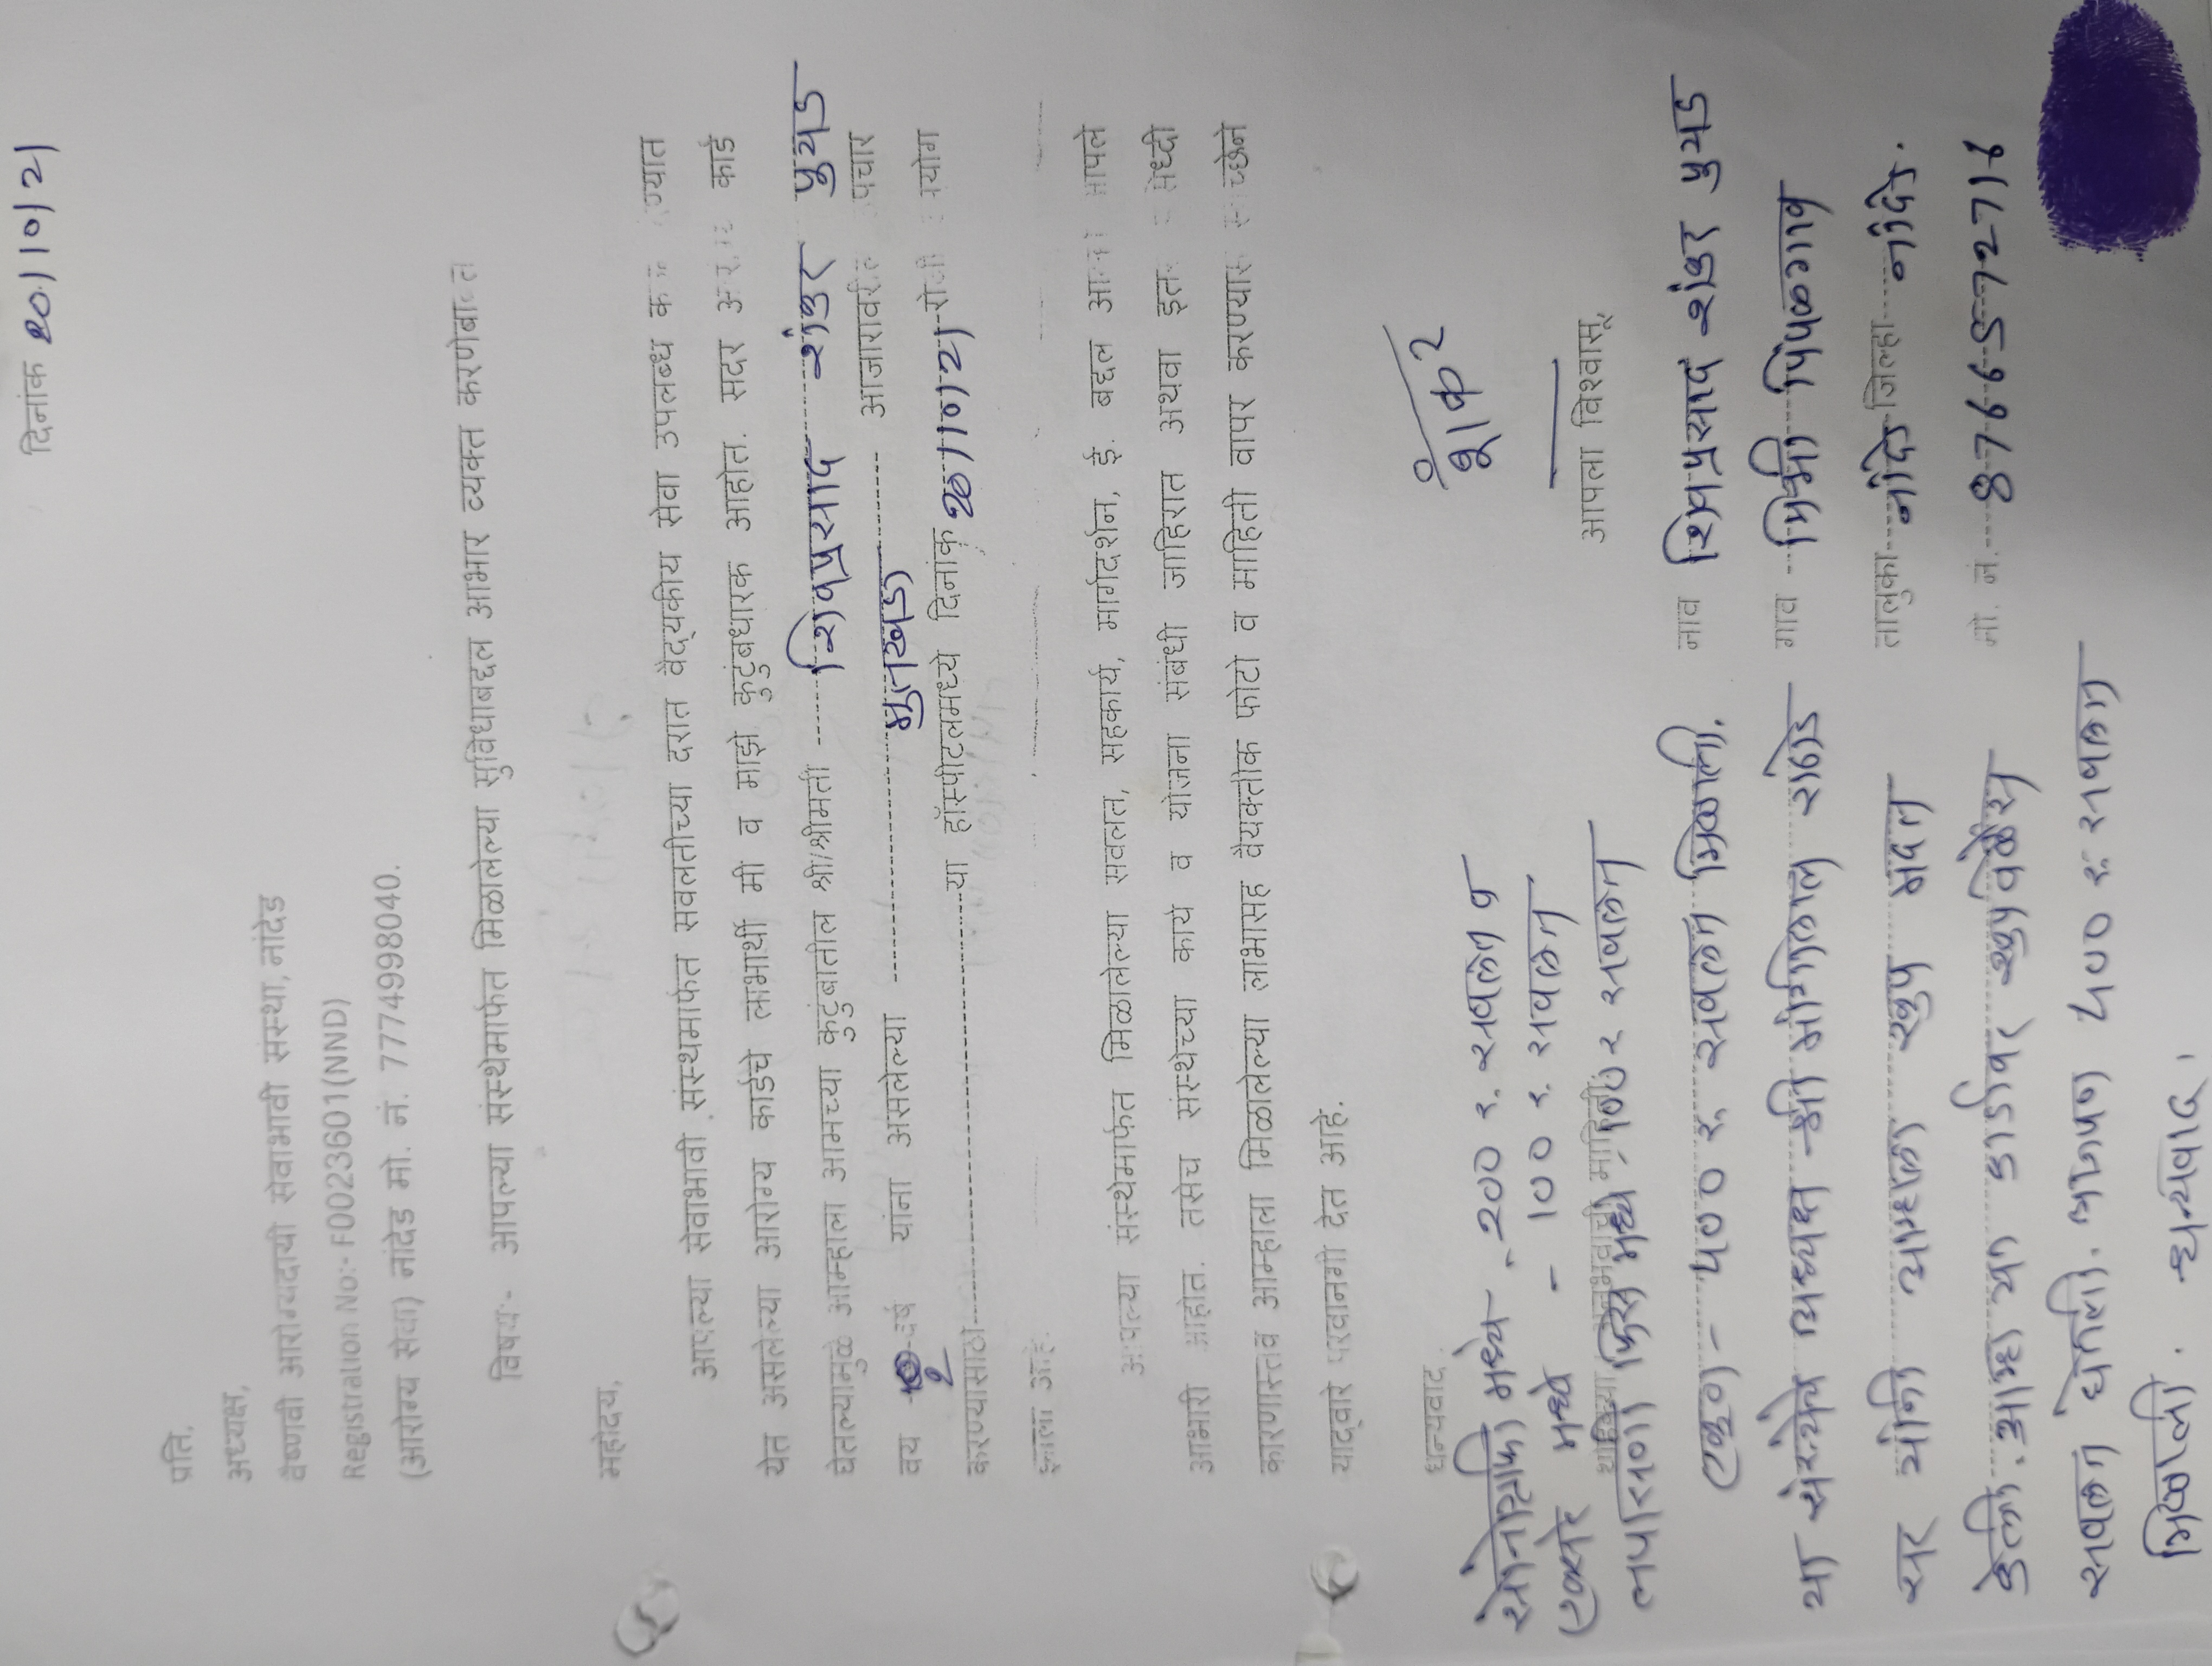 दिनांक 20/10/21
प्रति,
अध्यक्ष,
वैष्णवी आरोग्यदायी सेवाभावी संस्था, नांदेड
Registration No:- F0023601(NND)
(आरोग्य सेवा) नांदेड मो. नं. 7774998040.
विषय:- आपल्या संस्थेमार्फत मिळालेल्या सुविधाबद्दल आभार व्यक्त करणेबाबत
महोदय,
आपल्या सेवाभावी संस्थमार्फत सवलतीच्या दरात वैद्यकीय सेवा उपलब्ध
येत असलेल्या आरोग्य कार्डचे लाभार्थी मी व माझे कुटुंबधारक आहोत. सदर कार्ड
घेतल्यामुळे आम्हाला आमच्या कुटुंबातील श्री/श्रीमती शिवप्रसाद शंकर पुयड
वय 2 वर्ष यांना असलेल्या मुतखडा आजारावरील
करण्यासाठी या हॉस्पीटलमध्ये दिनांक /10/21 रोजी
झाला आहे.
आपल्या संस्थेमार्फत मिळालेल्या सवलत, सहकार्य, मार्गदर्शन, ई. बद्दल आपले
आभारी आहोत. तसेच संस्थेच्या कार्य व योजना संबंधी जाहिरात अथवा
कारणास्तव आम्हाला मिळालेल्या लाभासह वैयक्तीक फोटो व माहिती वापर करण्यास
याद्वारे परवानगी देत आहे.
धन्यवाद
आपला विश्वासू,
सोनोग्राफी मध्ये - 200 रु. सवलत व
एक्सरे मध्ये - 100 रु. सवलत
तपासणी फिस मध्ये 100 रु सवलत
एकूण - 400 रु. सवलत मिळाली.
या संस्थेचे अध्यक्ष श्री राठोड
सर यांनी आम्हाला खुप मदत
केली. आम्ही या कार्डावर
सवलत घेतली. आपण 400 रु सवलत
मिळाली. धन्यवाद.
नाव शिवप्रसाद शंकर पुयड
गाव पिंपळगाव
तालुका नांदेड जिल्हा नांदेड.
मो. नं. 8766572716